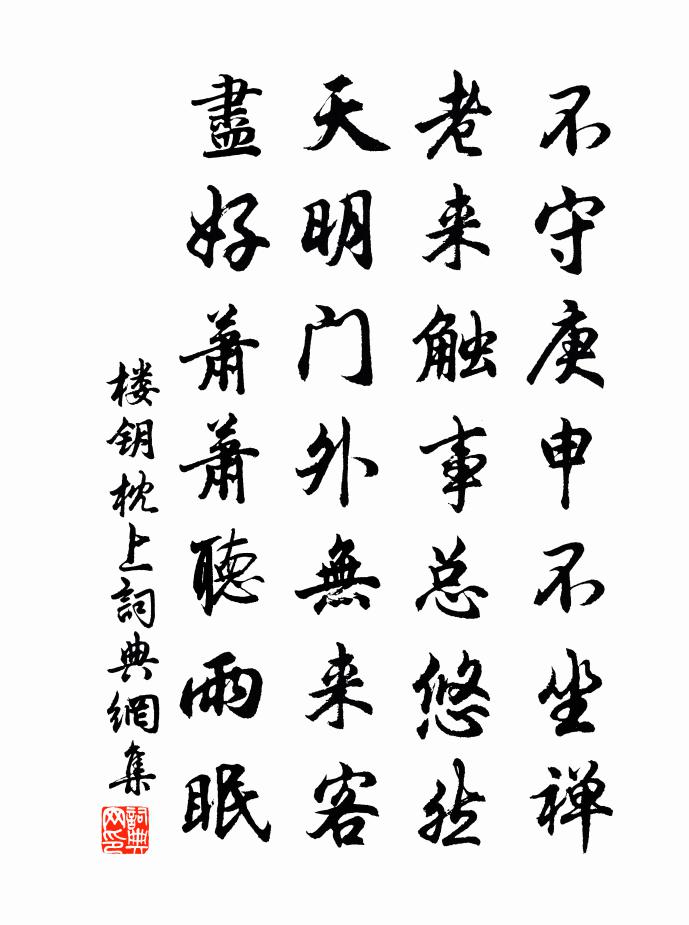 不守庚申不坐禅
老来触事总悠然
天明门外無来客
盡好萧萧聽雨眠
楼钥枕上詞典網集
詞典
网印